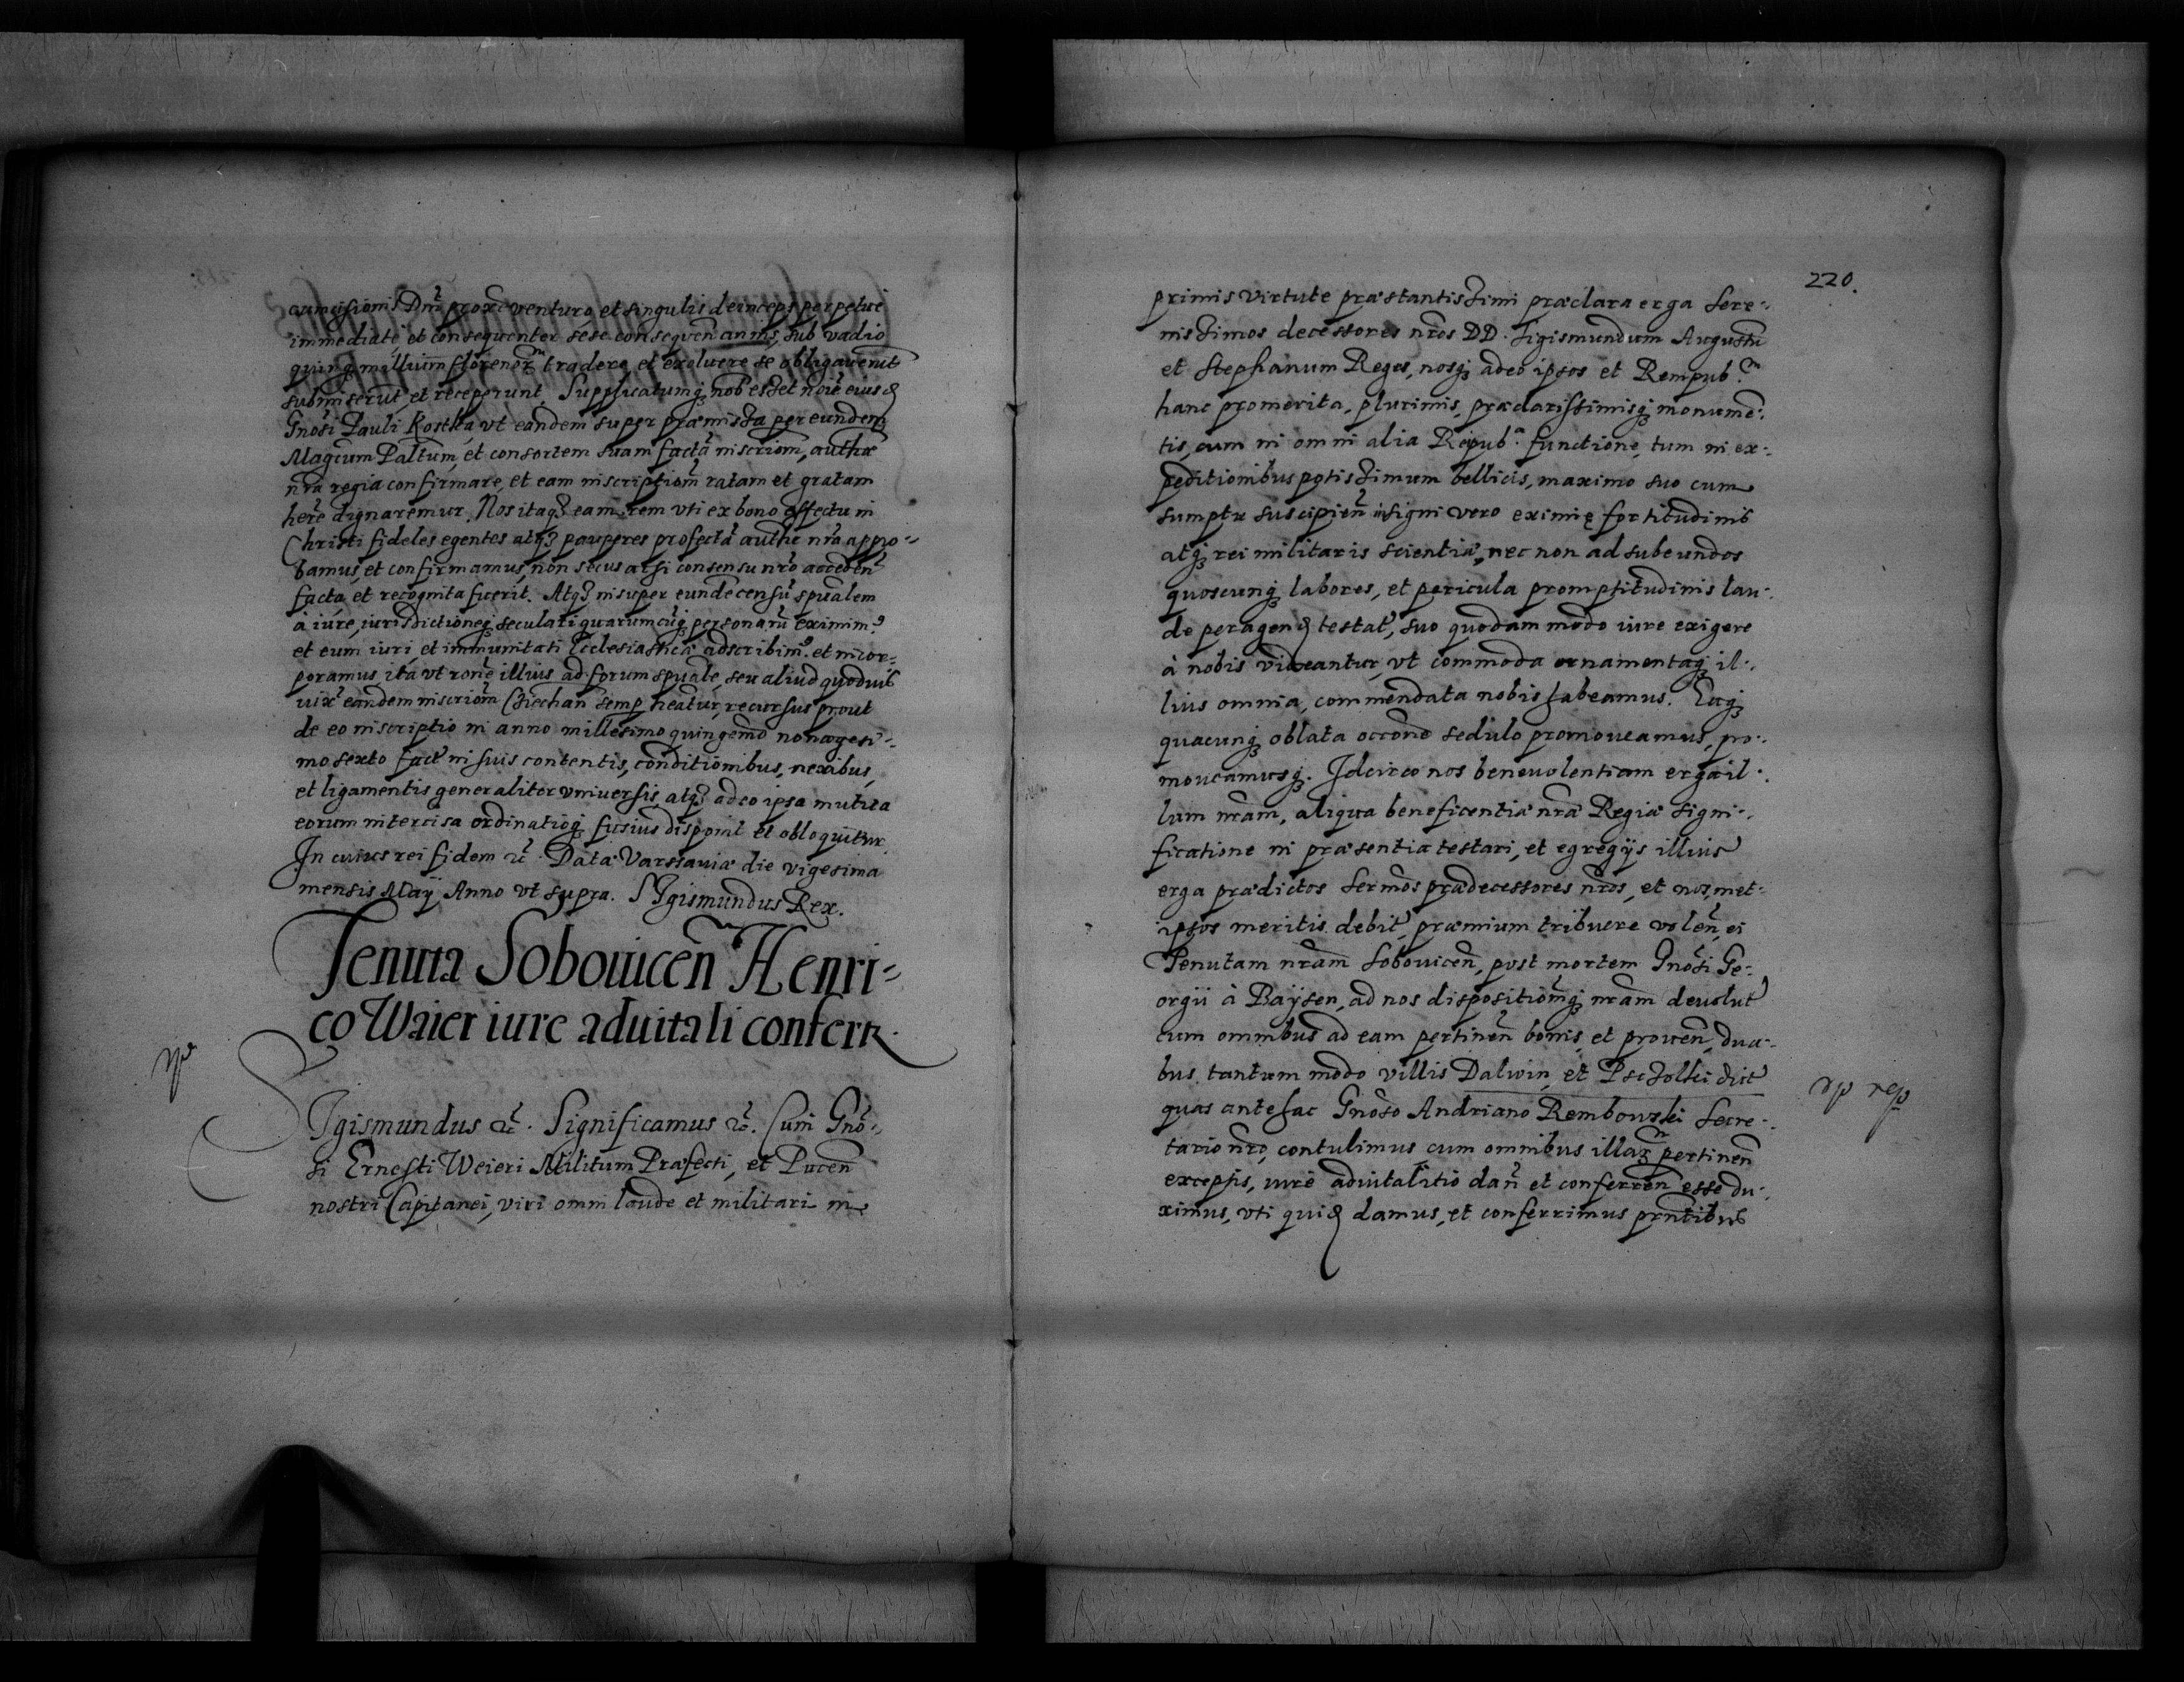 cumcisionis Dni proxe venturo, et singulis deinceps perpetue
immediate, et consequenter sese consequen annis, sub vadio
quinq millium florenor tradere, et exoluere se obligauerut
submiserut, et receperunt. Supplicatumq nob esset noie eiusd
Gnosi Pauli Kostka, vt eandem super præmissa per eundem
Magcum Paltum, et consortem suam factā inscriom, authæ
nra regia confirmare, et eam inscriptiom ratam et gratam
here dignaremur. Nos itaq eam rem vti ex bono affectu in
Christi fideles egentes atq pauperes profectā authe nra appro-
bamus, et confirmamus, non secus ac si consensu nro acceden
facta et recognita fuerit. Atq insuper eunde censū spualem
à iure, iurisdictioneq seculari quarumcūq personarū eximim9
et eum iuri et immunitati Ecclesiasticæ adscribim9 et incor-
poramus, ita vt rone illius ad forum spuale, seu aliud quoduis
iuxᵃ eandem inscriom semp heatur, recursus prout
de eo inscriptio in anno millesimo quingemo nonagesi-
mo sexto fact in suis contentis, conditionibus, nexibus,
et ligamentis generaliter vniuersis, atq adeo ipsa mutua
eorum intercisa ordinatioq fusius disponit et obloquitur.
In cuius rei fidem &c. Data Varsauiæ die vigesima
mensis Maÿ Anno vt supra. SIgismundus Rex.
Tenuta Sobouicen Henri-
co Waier iure aduitali confert.
SIgismundus &c. Significamus &c. Cum Gno-
si Ernesti Weieri Militum Præfecti, et Pucen
nostri Capitanei, viri omni laude et militari in
220.
primis virtute præstantissimi præclara erga Sere-
nissimos decessores nros DD. Sigismundum Augustū
et Stephanum Reges, nosq adeo ipsos et Rempub.
hanc promerita, plurimis, præclarissimisq monumē-
tis, cum in omni alia Reipub. functione, tum in ex-
peditionibus potissimum bellicis, maximo suo cum
sumptu suscipien insigni vero eximię fortitudinis
atq rei militaris scientiæ, nec non ad subeundos
quoscunq labores, et pericula promptitudinis lau-
de peragend testat, suo quodam modo iure exigere
à nobis videantur, vt commoda ornamentaq il-
lius omnia, commendata nobis habeamus. Eaq
quacunq oblata occone sedulo promoueamus, pro-
moueamusq. Idcirco nos beneuolentiam erga il-
lum nram, aliqua beneficentiæ nræ Regiæ signi-
ficatione in præsentia testari, et egregijs illius
erga prædictos Sermos prædecessores nros, et nosmet-
ipsos meritis debit præmium tribuere volen, ei
Tenutam nram Sobouicen, post mortem Gnosi Ge-
orgii à Baÿsen, ad nos dispositiomq nram deuolut
cum omnibus ad eam pertinen bonis, et prouen, dua-
bus tantum modo villis Dalwin, et Psczolki dict
quas antehac Gnoso Andriano Rembowski Secre-
tario nro, contulimus cum omnibus illar pertinen
exceptis, iure aduitalitio dan et conferren esse du-
ximus, vti quid damus, et conferrimus prntibus